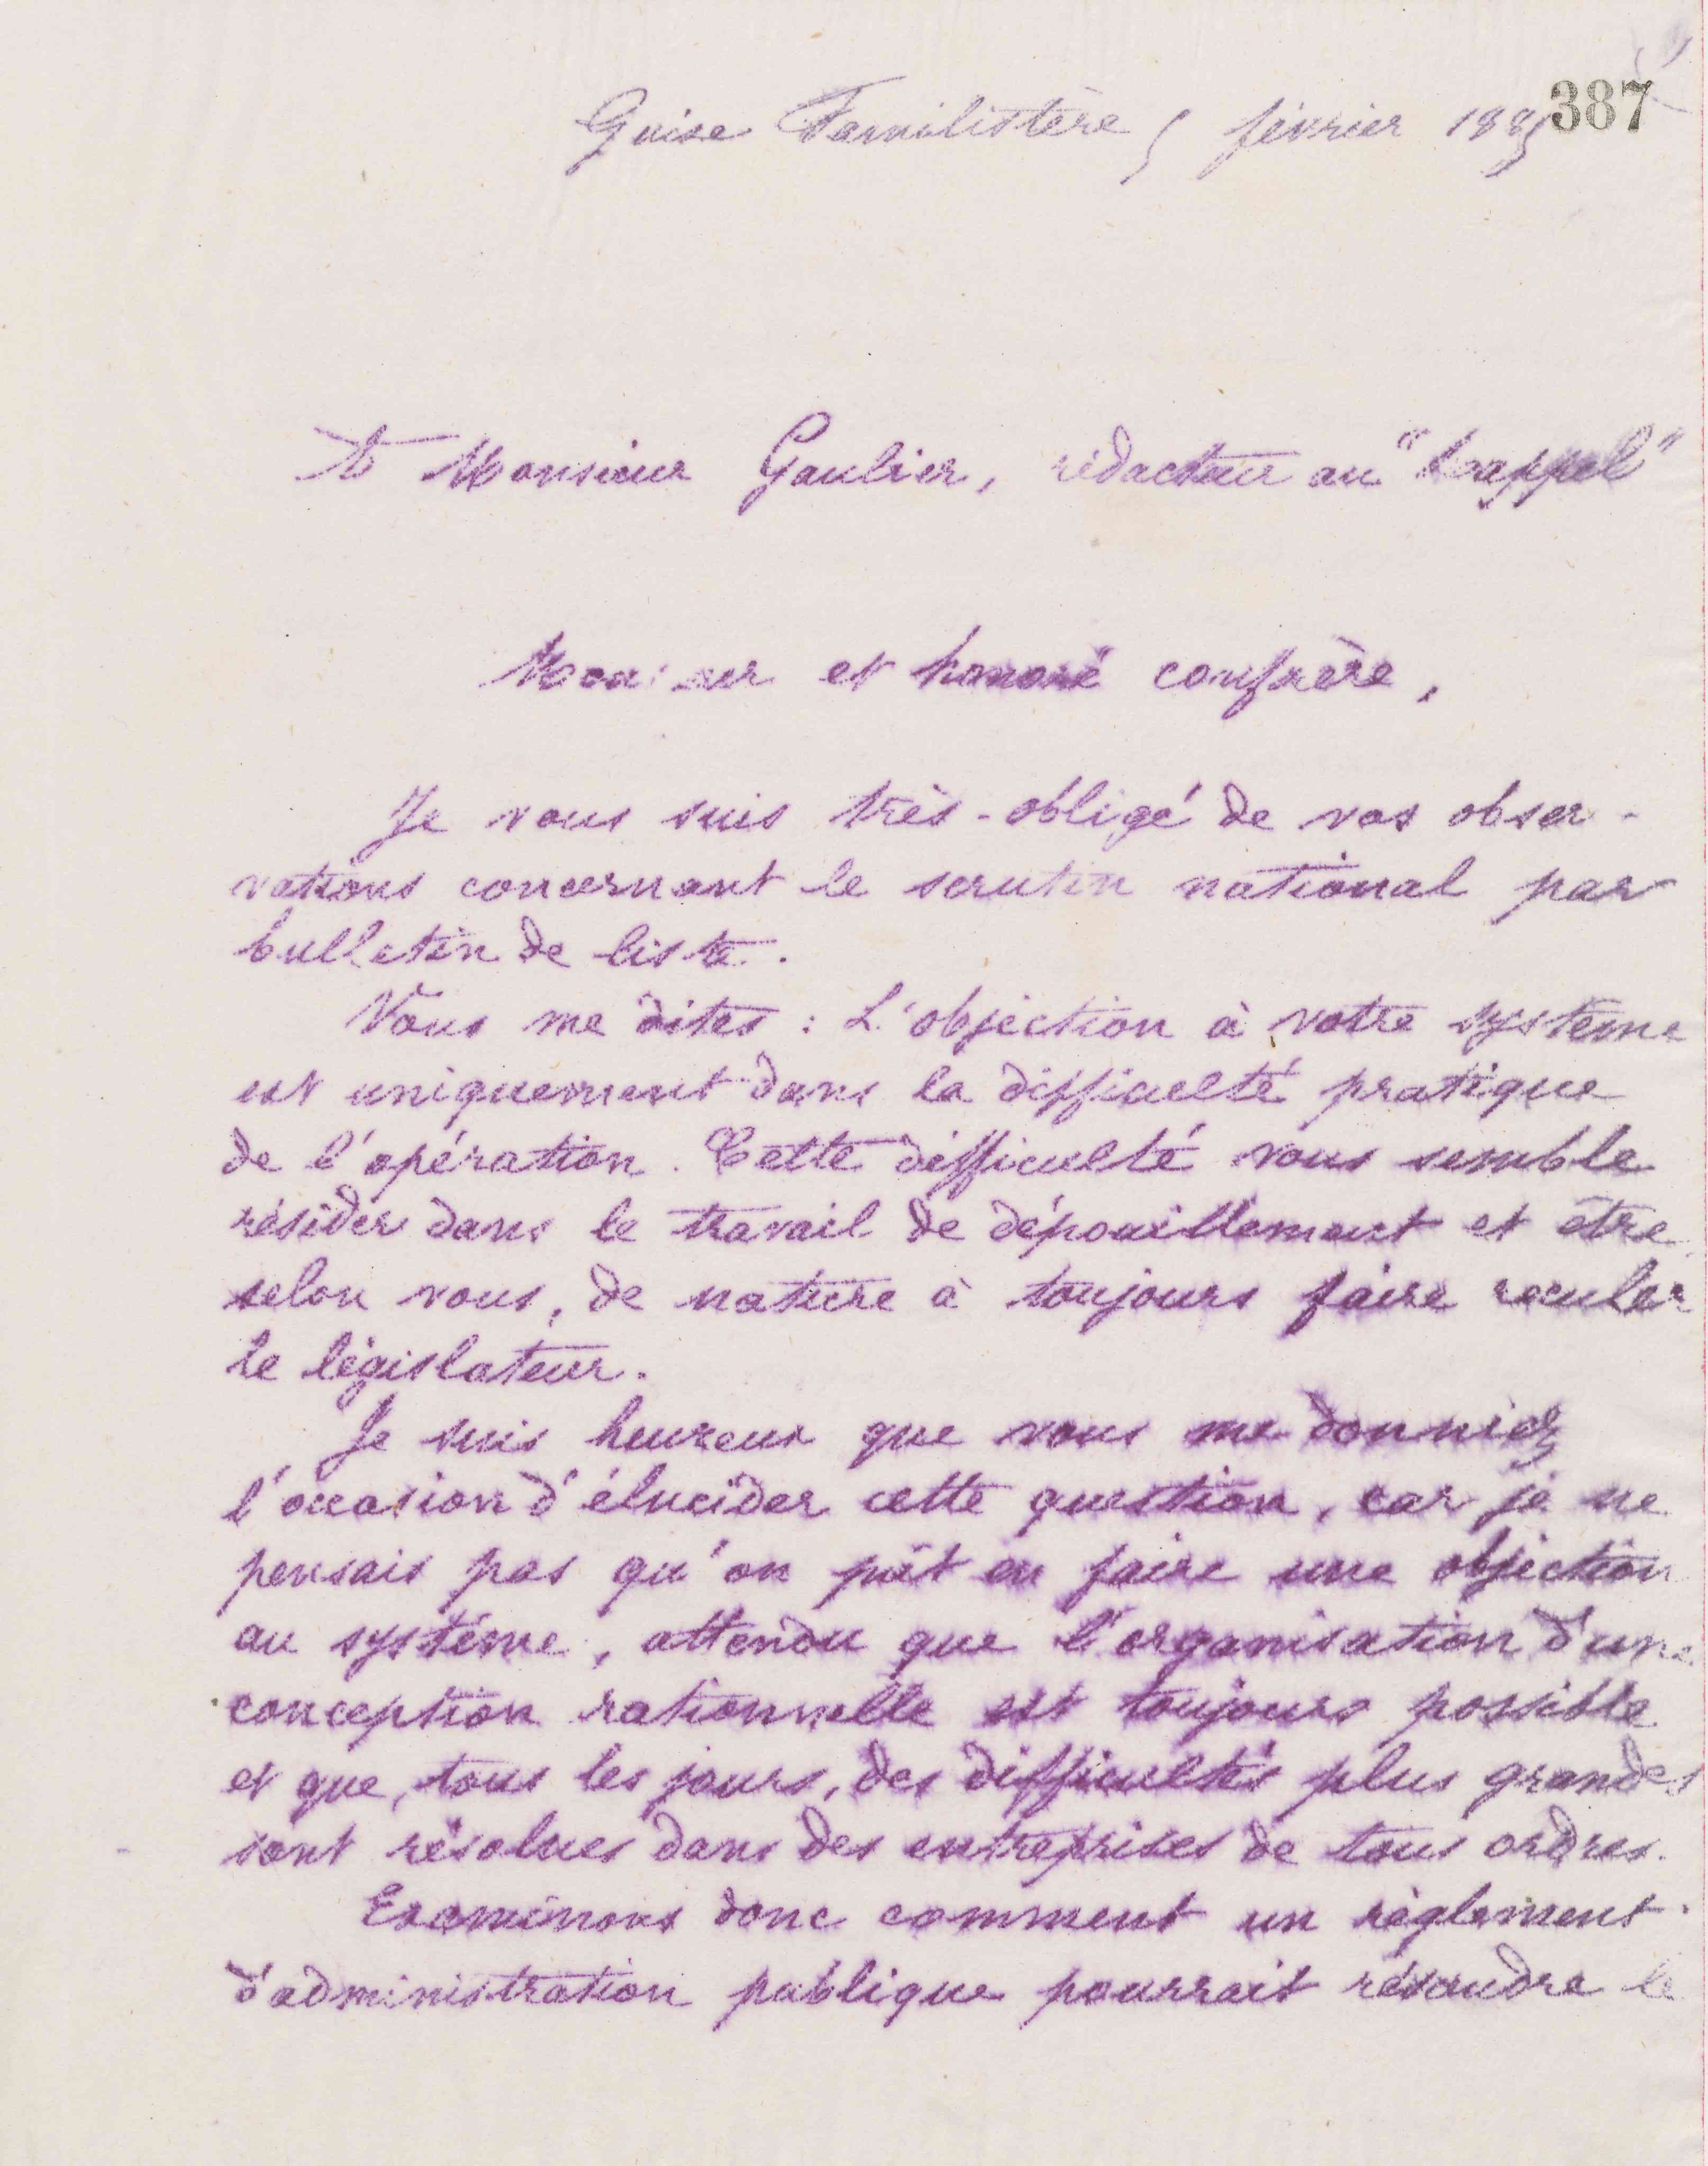 387
Guise Familistère 5 février 1885
A Monsieur Gaulier, rédacteur au "Rappel"
Monsieur et honoré confrère,
Je vous suis très-obligé de vos obser-
vations concernant le scrutin national par
bulletin de liste.
Vous me dites : L'objection à votre système
est uniquement dans la difficulté pratique
de l'opération. Cette difficulté vous semble
résider dans le travail de dépouillement et être
selon vous, de nature à toujours faire reculer
le législateur.
Je suis heureux que vous me donniez
l'occasion d'élucider cette question, car je ne
pensais pas qu'on pût en faire une objection
au système, attendu que l'organisation d'une
conception rationnelle est toujours possible
et que, tous les jours, des difficultés plus grandes
sont résolues dans des entreprises de tous ordres.
Examinons donc comment un règlement
d'administration publique pourrait résoudre le